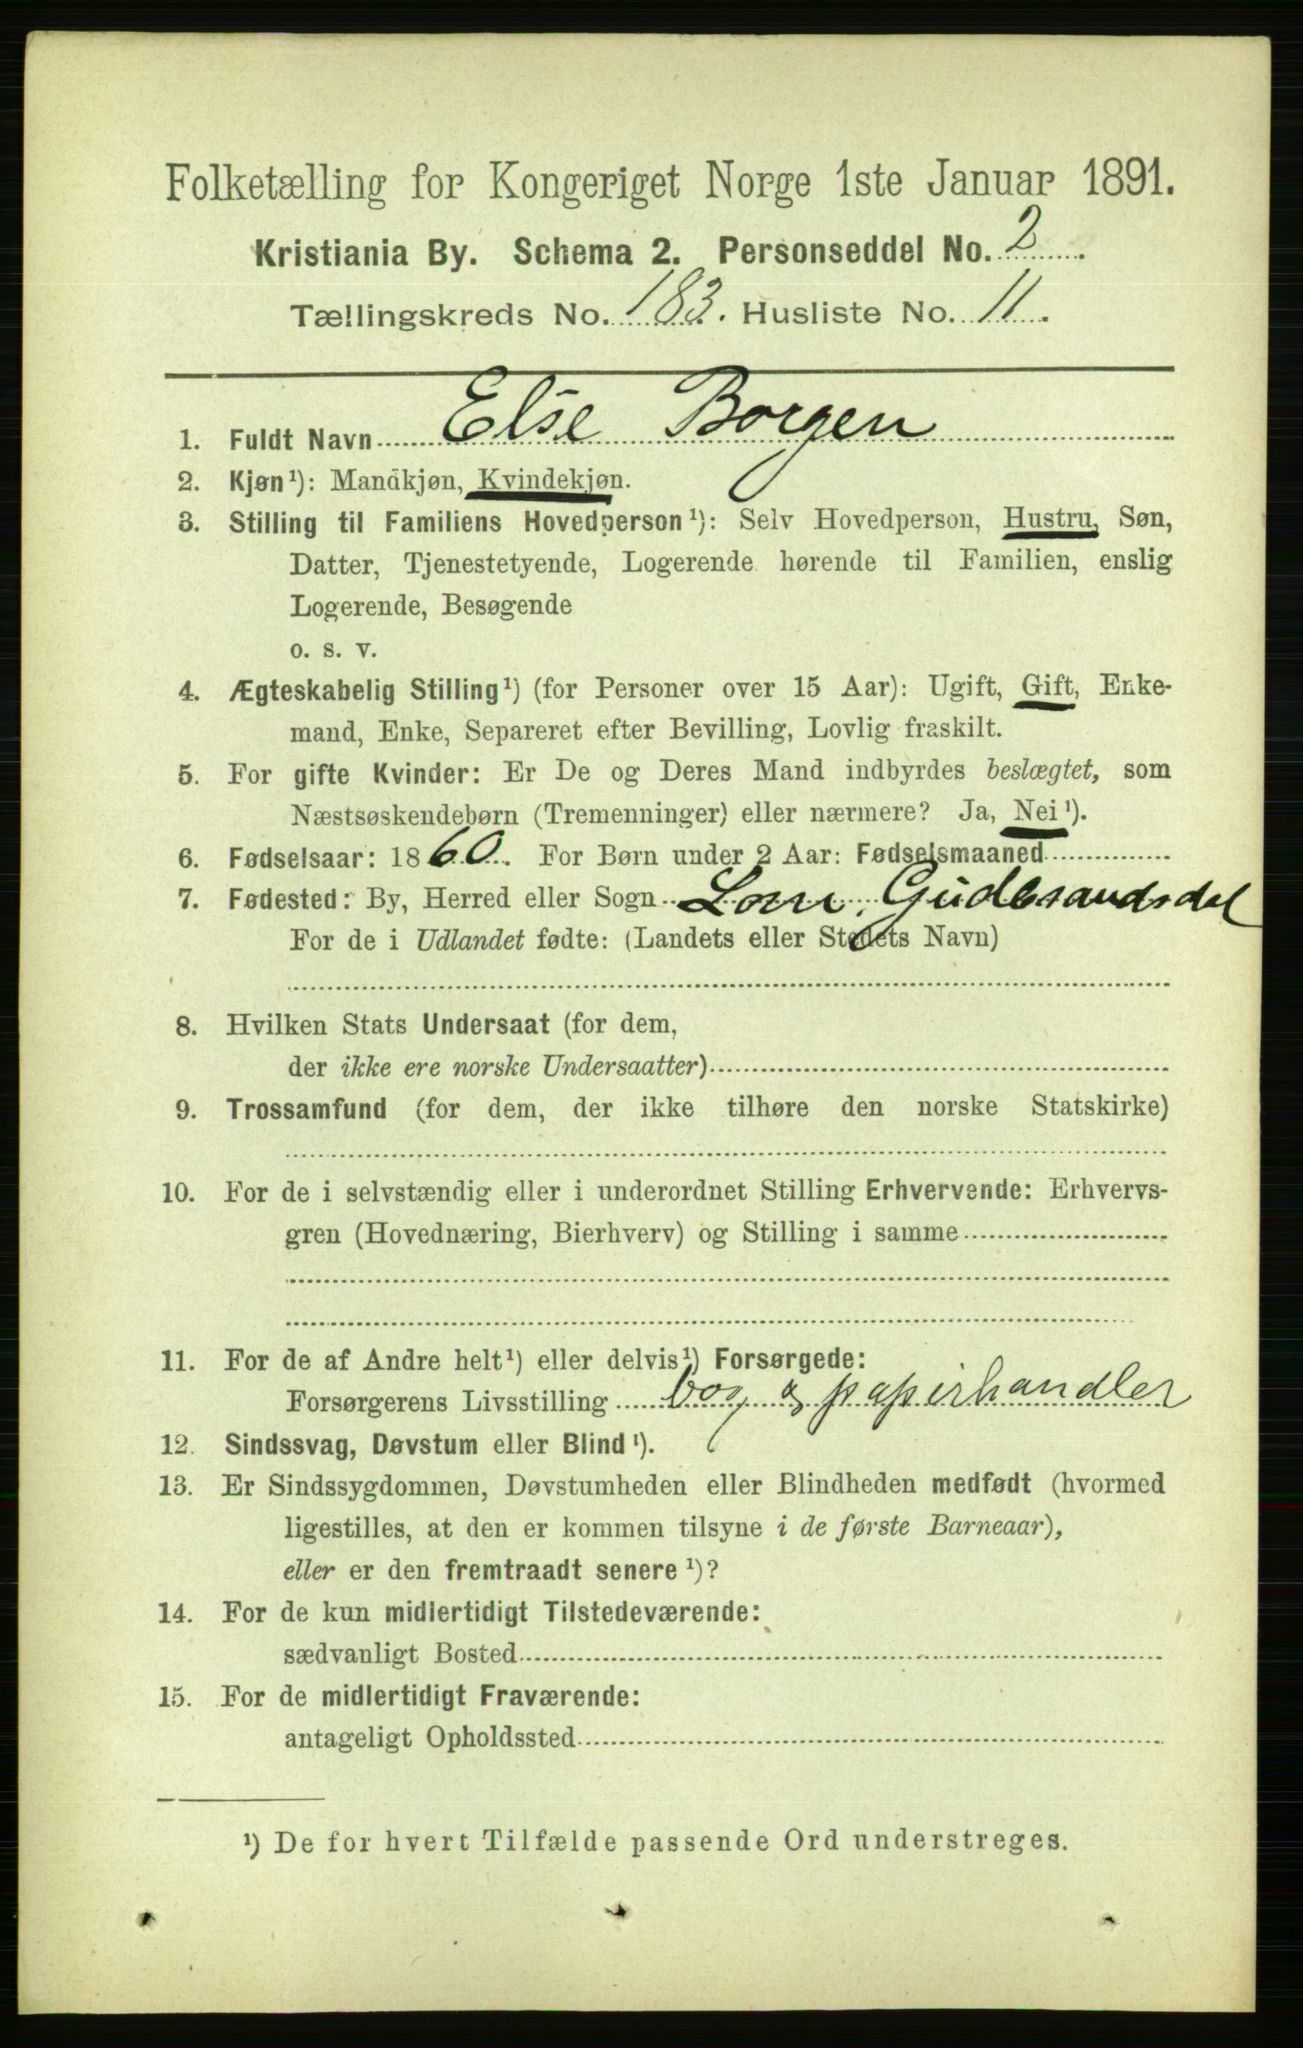 Folketælling for Kongeriget Norge 1ste Januar 1891.
Kristiania By. Schema 2. Personseddel No. 2.
Tællingskreds No. 183. Husliste No. 11.
1. Fuldt Navn Else Borgen
2. Kjøn¹): Mandkjøn, Kvindekjøn.
3. Stilling til Familiens Hovedperson¹): Selv Hovedperson, Hustru, Søn,
Datter, Tjenestetyende, Logerende hørende til Familien, enslig
Logerende, Besøgende
o. s. v.
4. Ægteskabelig Stilling¹) (for Personer over 15 Aar): Ugift, Gift, Enke-
mand, Enke, Separeret efter Bevilling, Lovlig fraskilt.
5. For gifte Kvinder: Er De og Deres Mand indbyrdes beslægtet, som
Næstsøskendebørn (Tremenninger) eller nærmere? Ja, Nei¹).
6. Fødselsaar: 1860. For Børn under 2 Aar: Fødselsmaaned
7. Fødested: By, Herred eller Sogn Lom, Gudbrandsdal
For de i Udlandet fødte: (Landets eller Stedets Navn)
8. Hvilken Stats Undersaat (for dem,
der ikke ere norske Undersaatter)
9. Trossamfund (for dem, der ikke tilhøre den norske Statskirke)
10. For de i selvstændig eller i underordnet Stilling Erhvervende: Erhvervs-
gren (Hovednæring, Bierhverv) og Stilling i samme
11. For de af Andre helt¹) eller delvis¹) Forsørgede:
Forsørgerens Livsstilling bog og papirhandler
12. Sindssvag, Døvstum eller Blind¹).
13. Er Sindssygdommen, Døvstumheden eller Blindheden medfødt (hvormed
ligestilles, at den er kommen tilsyne i de første Barneaar),
eller er den fremtraadt senere¹)?
14. For de kun midlertidigt Tilstedeværende:
sædvanligt Bosted
15. For de midlertidigt Fraværende:
antageligt Opholdssted
¹) De for hvert Tilfælde passende Ord understreges.